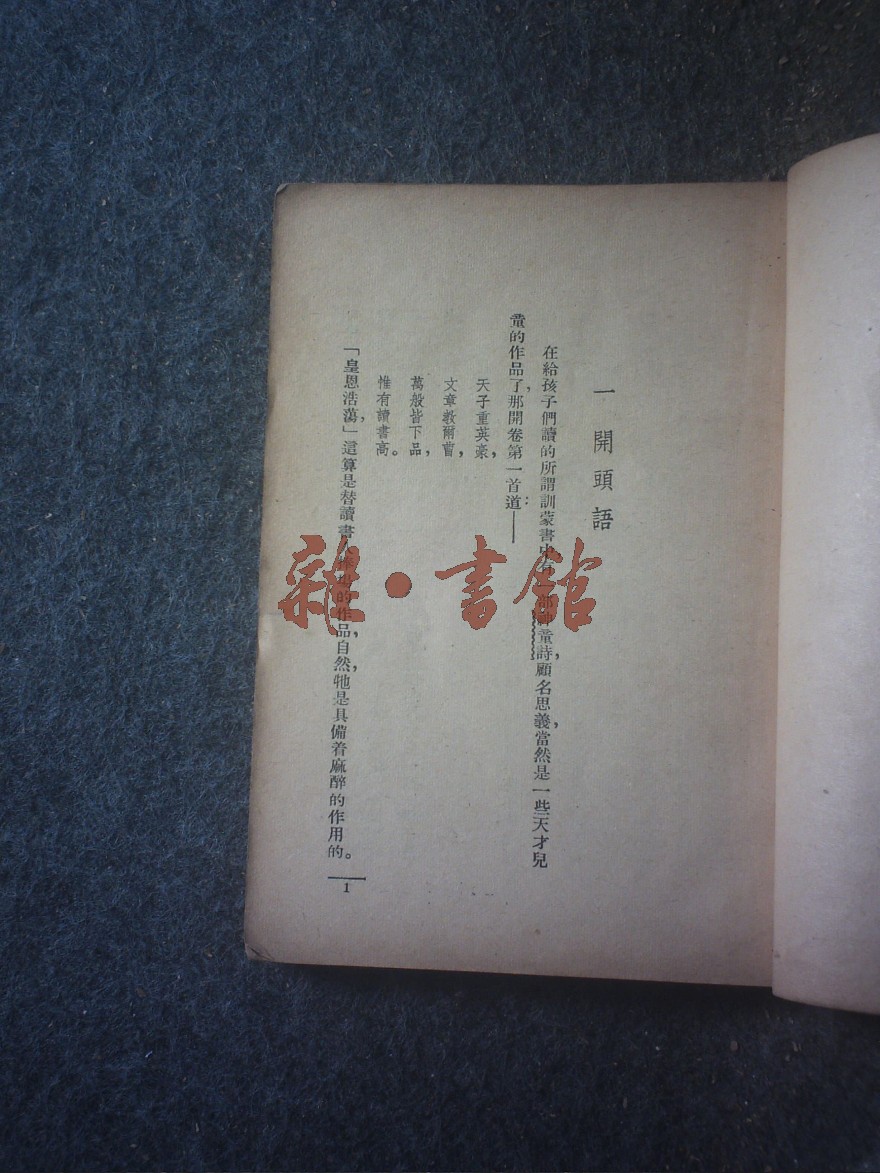 一 開頭語
在給孩子們讀的所謂訓蒙書中有一部神童詩，顧名思義，當然是一些天才兒
童的作品了，那開卷第一首道：——
天子重英豪，
文章教爾曹，
萬般皆下品，
惟有讀書高。
「皇恩浩蕩，」這算是替讀書的作品，自然，牠是具備着麻醉的作用的。
1
雜·書館